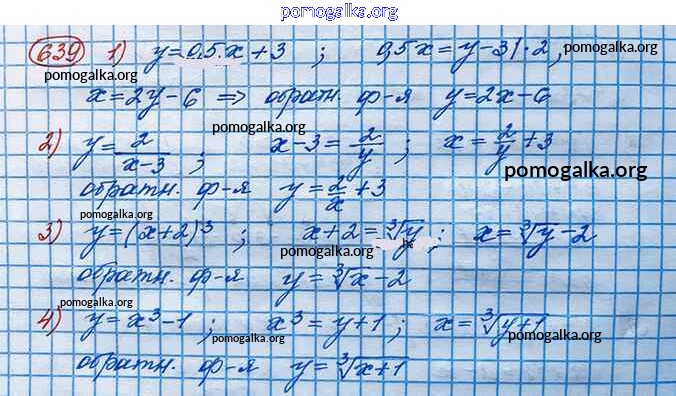 pomogalka.org
639 1) y=0,5x+3 ; 0,5x=y-3|·2,
pomogalka.org pomogalka.org
x=2y-6 ⇒ обратн. ф-я y=2x-6
pomogalka.org
2) y=2/(x-3) ; x-3=2/y ; x=2/y+3
pomogalka.org
обратн. ф-я y=2/x+3
pomogalka.org
3) y=(x+2)³ ; x+2=∛y ; x=∛y-2
pomogalka.org
обратн. ф-я y=∛x-2
pomogalka.org
4) y=x³-1 ; x³=y+1 ; x=∛(y+1)
pomogalka.org pomogalka.org
обратн. ф-я y=∛(x+1)